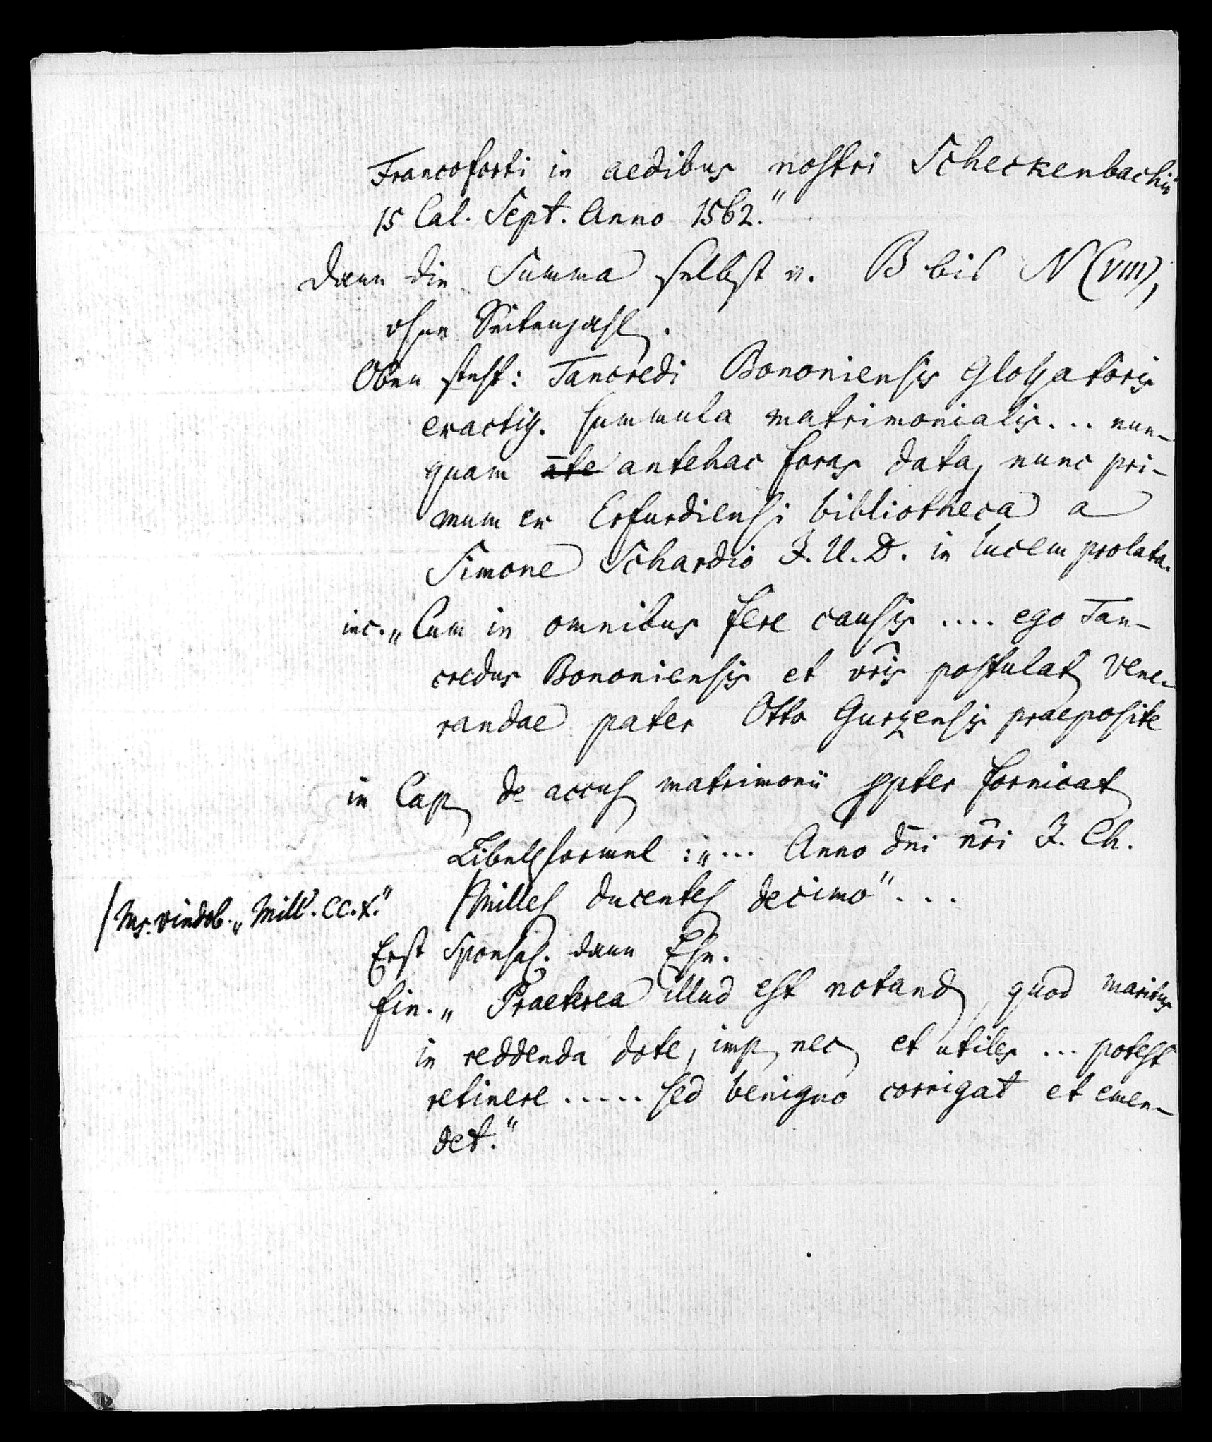 Francoforti in aedibus nostri Scheckenbachii
15 Cal. Sept. Anno 1562."
Dann die Summa selbst v. B bis N (VIII),
ohne Seitenzahl.
Oben steht: Tancredi Bononiensis Glossatoris
exactiss. summula matrimonialis ... nun-
quam āte antehac foras data, nunc pri-
mum ex Erfurdiensi bibliotheca a
Simone Schardio J. U. D. in lucem prolata.
inc. „Cum in omnibus fere causis .... ego Tan-
credus Bononiensis et vr̄is postulat. Vene-
randae pater Otto Gurzensis praeposite
in Cap. de accus. matrimonii ppter fornicat.
Libellformel : „... Anno dn̄i nr̄i J. Ch.
/Milles. ducentes. decimo" ...
/Ms. vindob. „Mill'. CC. X."
Erst Sponsal. dann Ehe.
fin. „Praeterea illud est notand., quod maritus
in reddenda dote, imp. nec. et utiles ... potest
retinere ..... sed benigno corrigat et emen-
det."